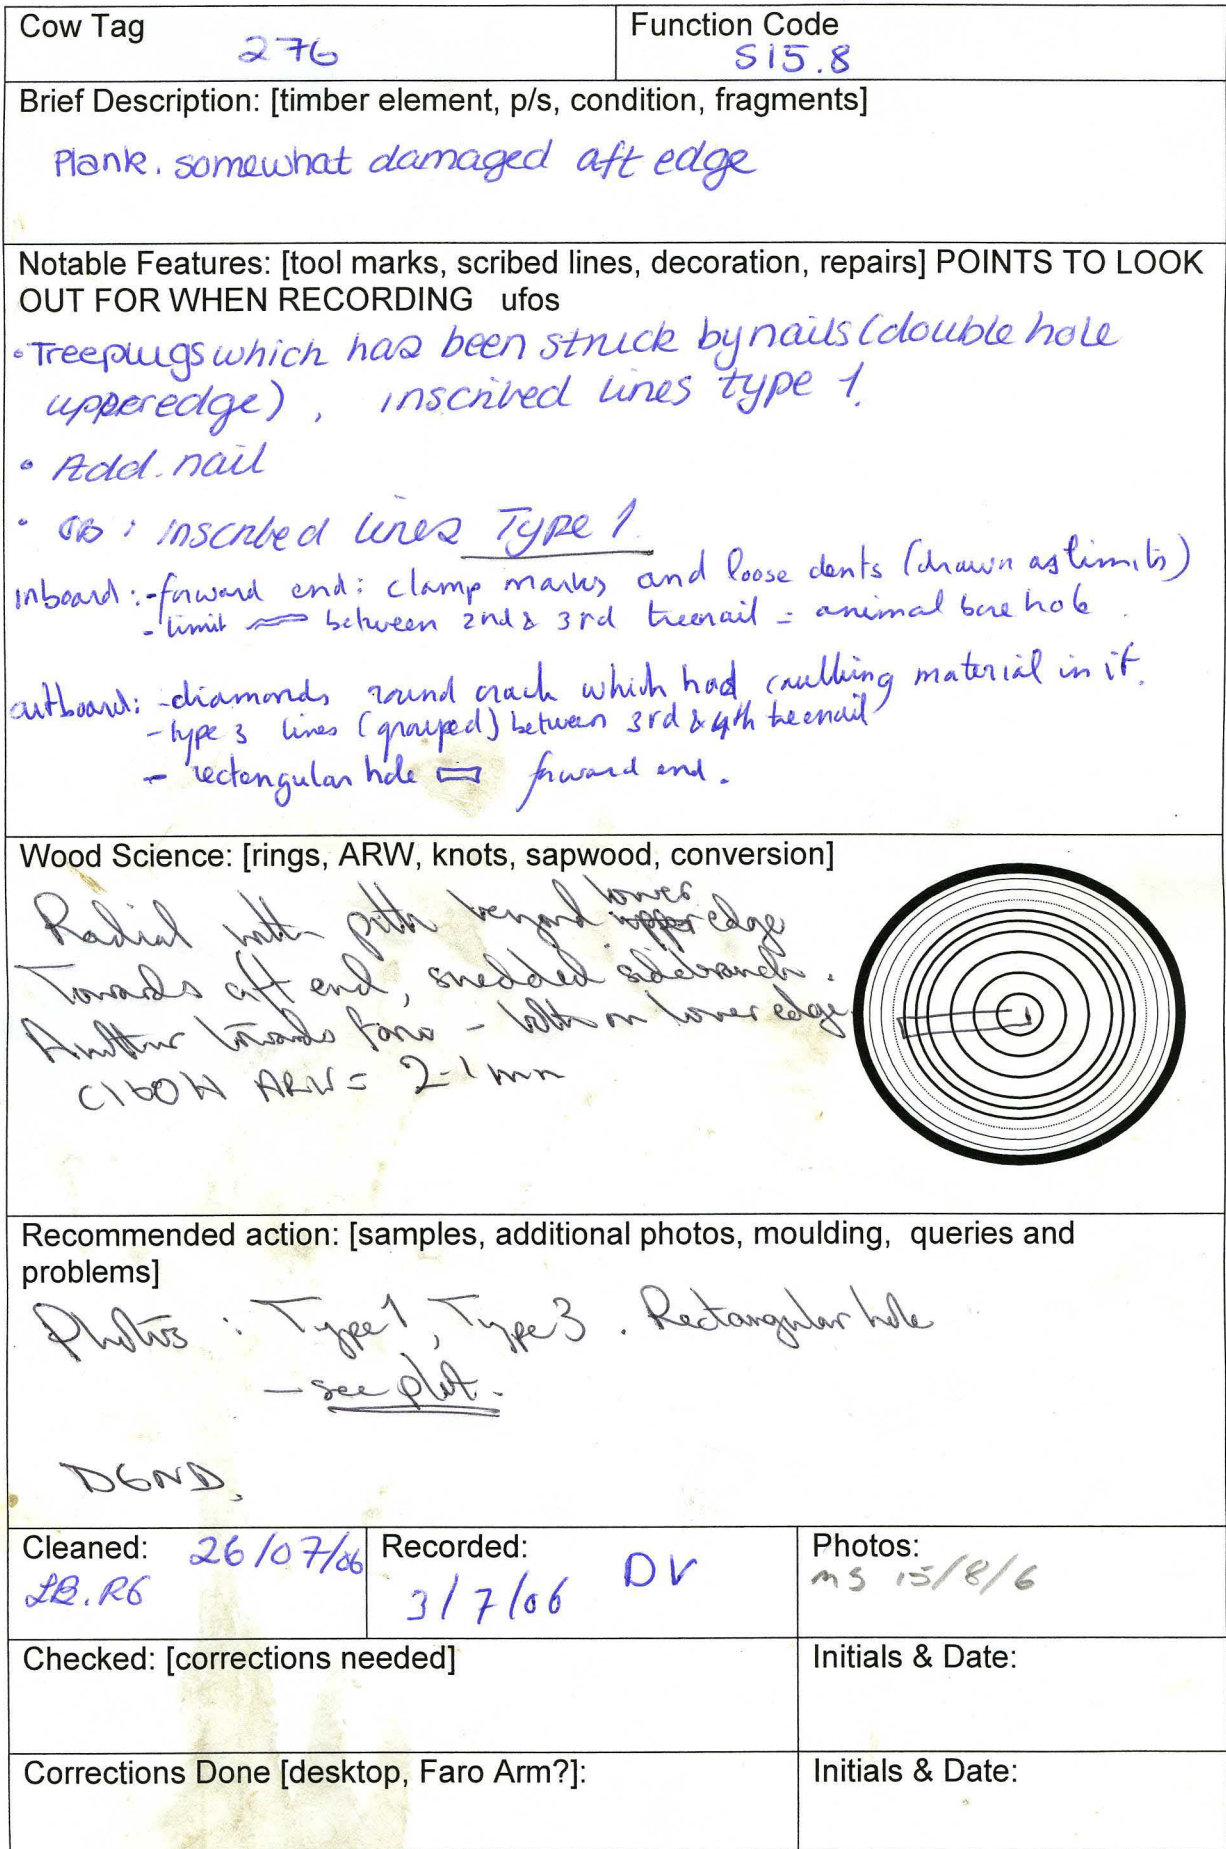 Cow Tag
276
Function Code
S15.8
Brief Description: [timber element, p/s, condition, fragments]
Plank. somewhat damaged aft edge
Notable Features: [tool marks, scribed lines, decoration, repairs] POINTS TO LOOK
OUT FOR WHEN RECORDING ufos
• Treeplugs which has been struck by nails (double hole
upperedge), inscribed lines type 1.
• Add. nail
• OB: inscribed lines Type 1.
inboard: - forward end: clamp marks and loose dents (drawn as limits)
- limit between 2nd & 3rd treenail = animal bore hole.
outboard: - diamonds round crack which had caulking material in it.
- type 3 lines (grouped) between 3rd & 4th treenail
- rectengular hole forward end.
Wood Science: [rings, ARW, knots, sapwood, conversion]
Radial with pith beyond lower edge
Towards aft end, snedded sidebranch.
Another towards forw - both on lower edge.
C160H ARW = 2.1mm
Recommended action: [samples, additional photos, moulding, queries and
problems]
Photos: Type 1, Type 3. Rectangular hole
- see plot.
DGND.
Cleaned: 26/07/06
LB. RG
Recorded:
3/7/06 DV
Photos:
MS 15/8/6
Checked: [corrections needed]
Initials & Date:
Corrections Done [desktop, Faro Arm?]:
Initials & Date: